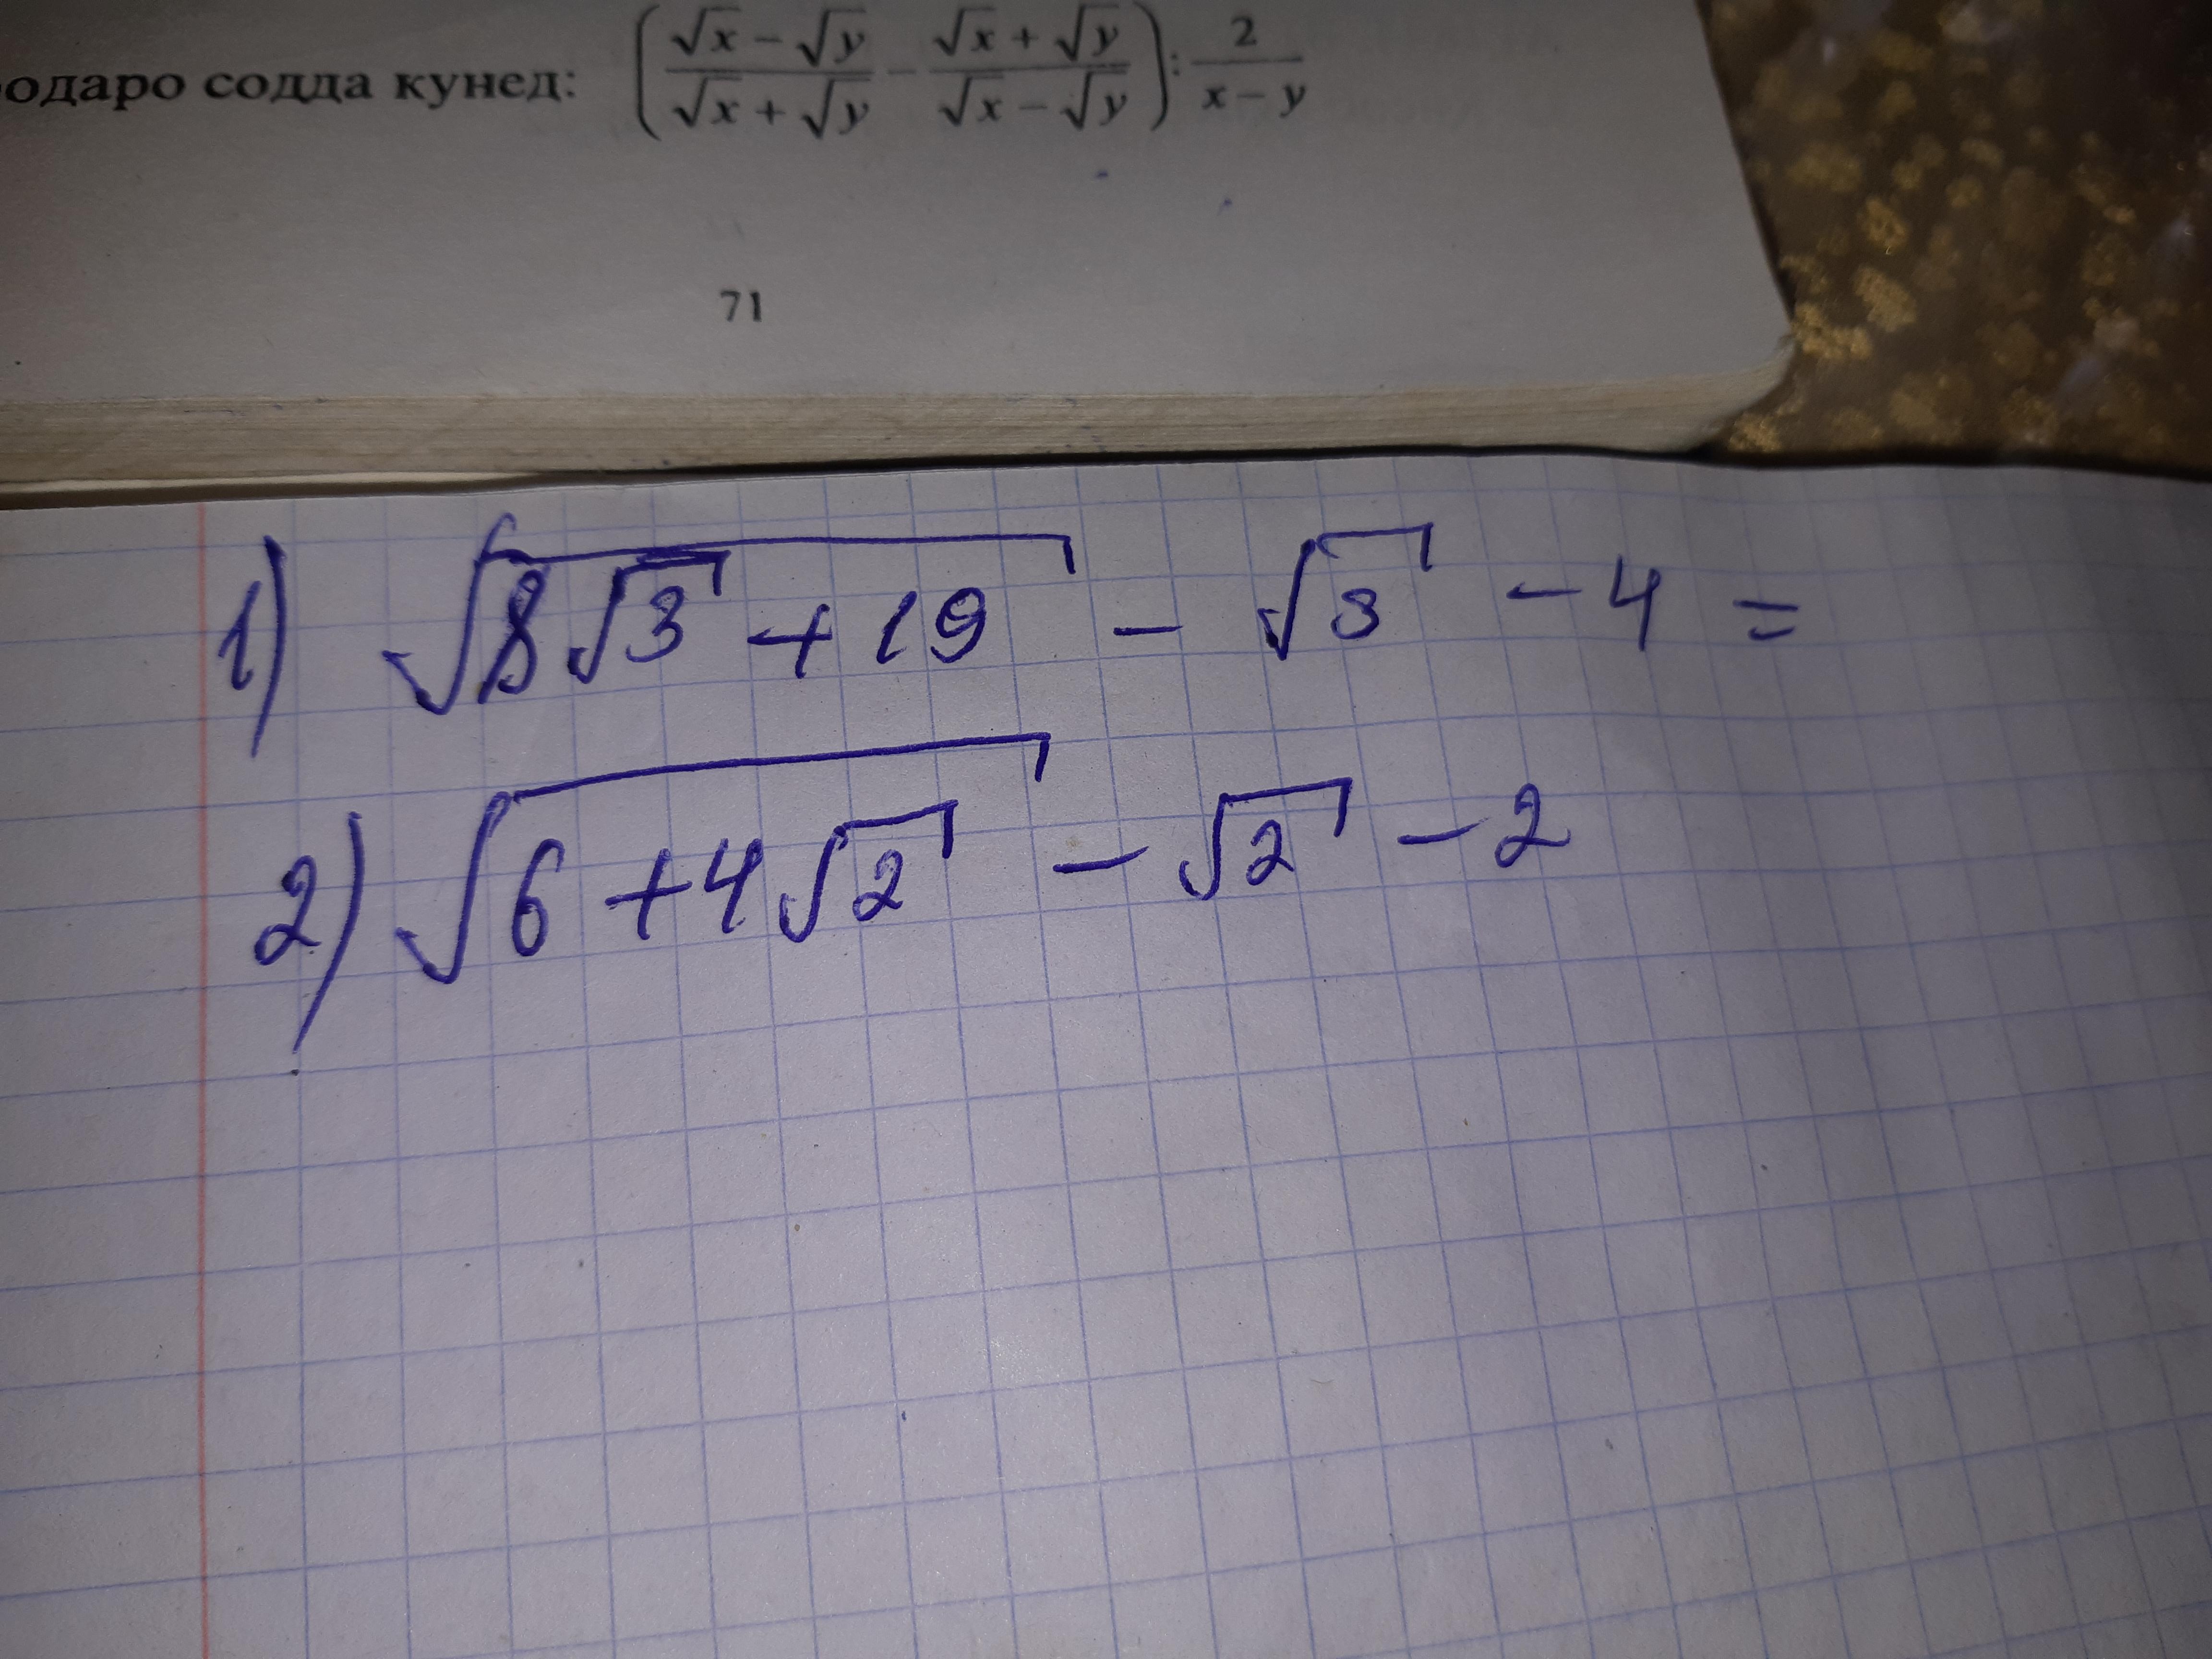 одаро содда кунед: (√x − √y / √x + √y − √x + √y / √x − √y) : 2 / x − y
71
1) √(8√3 + 19) − √3 − 4 =
2) √(6 + 4√2) − √2 − 2